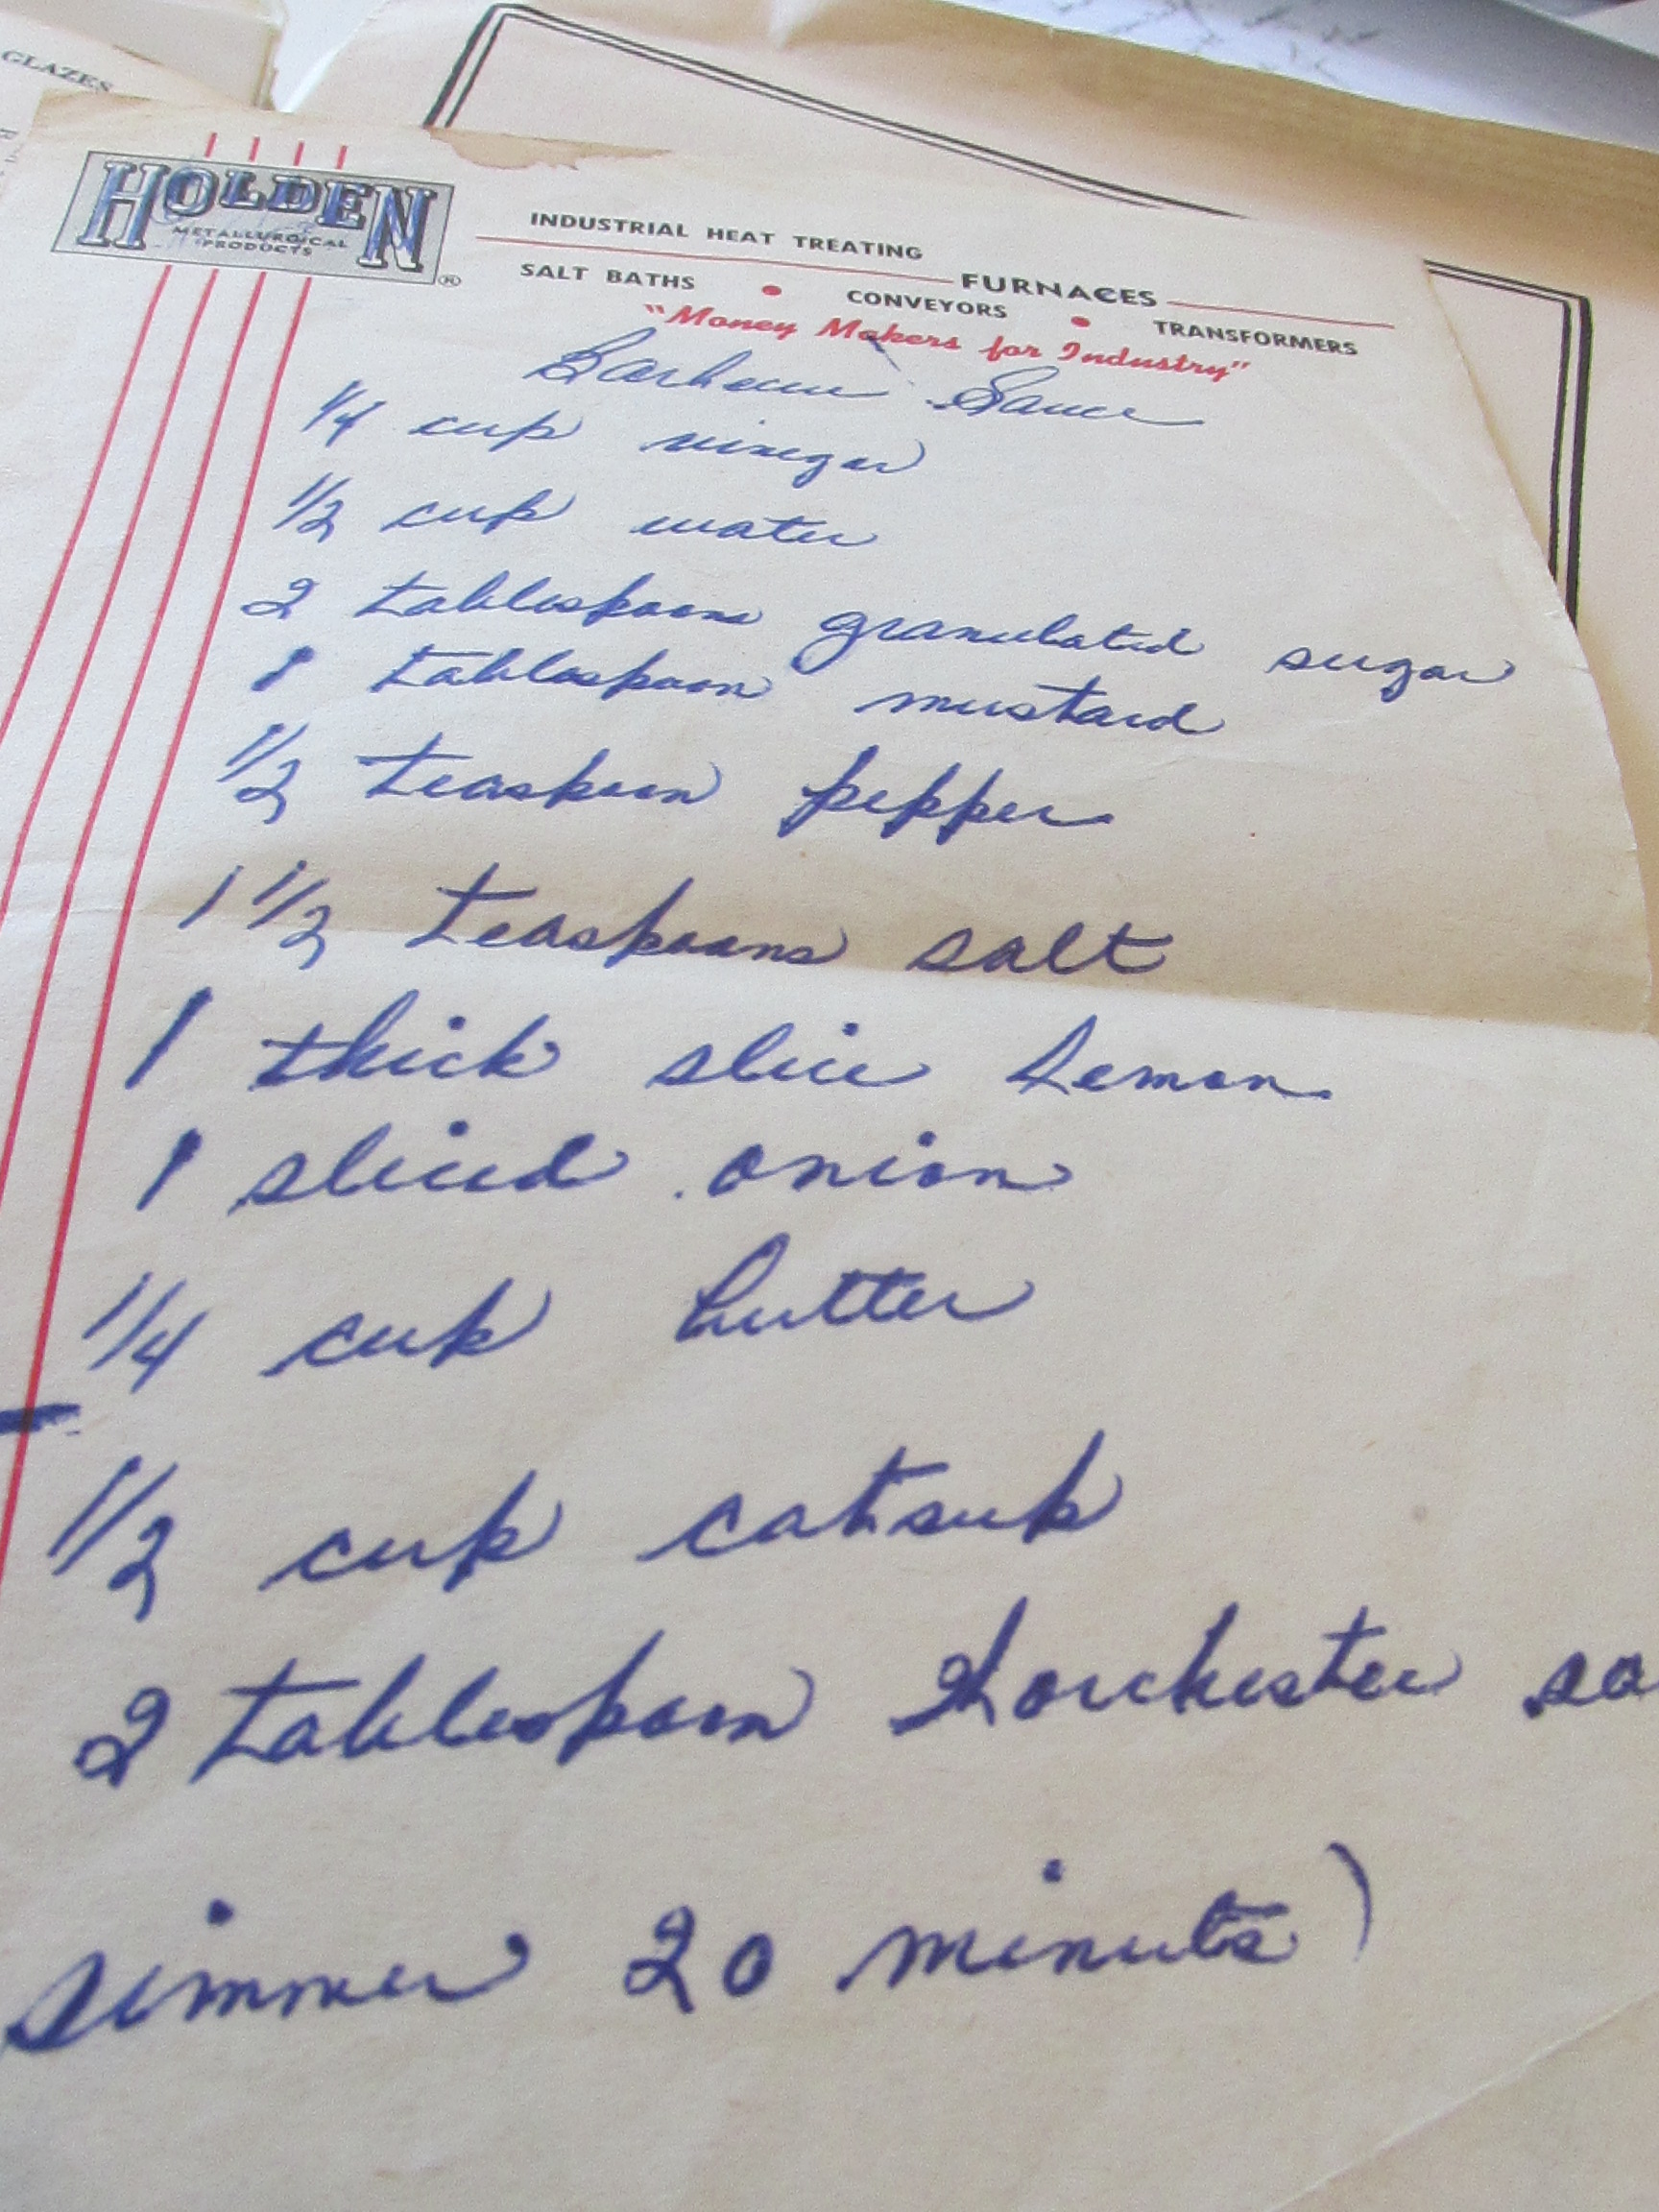 GLAZES
HOLDEN
METALLURGICAL
PRODUCTS
®
INDUSTRIAL HEAT TREATING
FURNACES
SALT BATHS • CONVEYORS • TRANSFORMERS
"Money Makers for Industry"
Barbecue Sauce
1/4 cup vinegar
1/2 cup water
2 tablespoons granulated sugar
1 tablespoon mustard
1/2 teaspoon pepper
1 1/2 teaspoons salt
1 thick slice Lemon
1 sliced onion
1/4 cup butter
1/2 cup catsup
2 tablespoon Worchester sa
simmer 20 minuts)